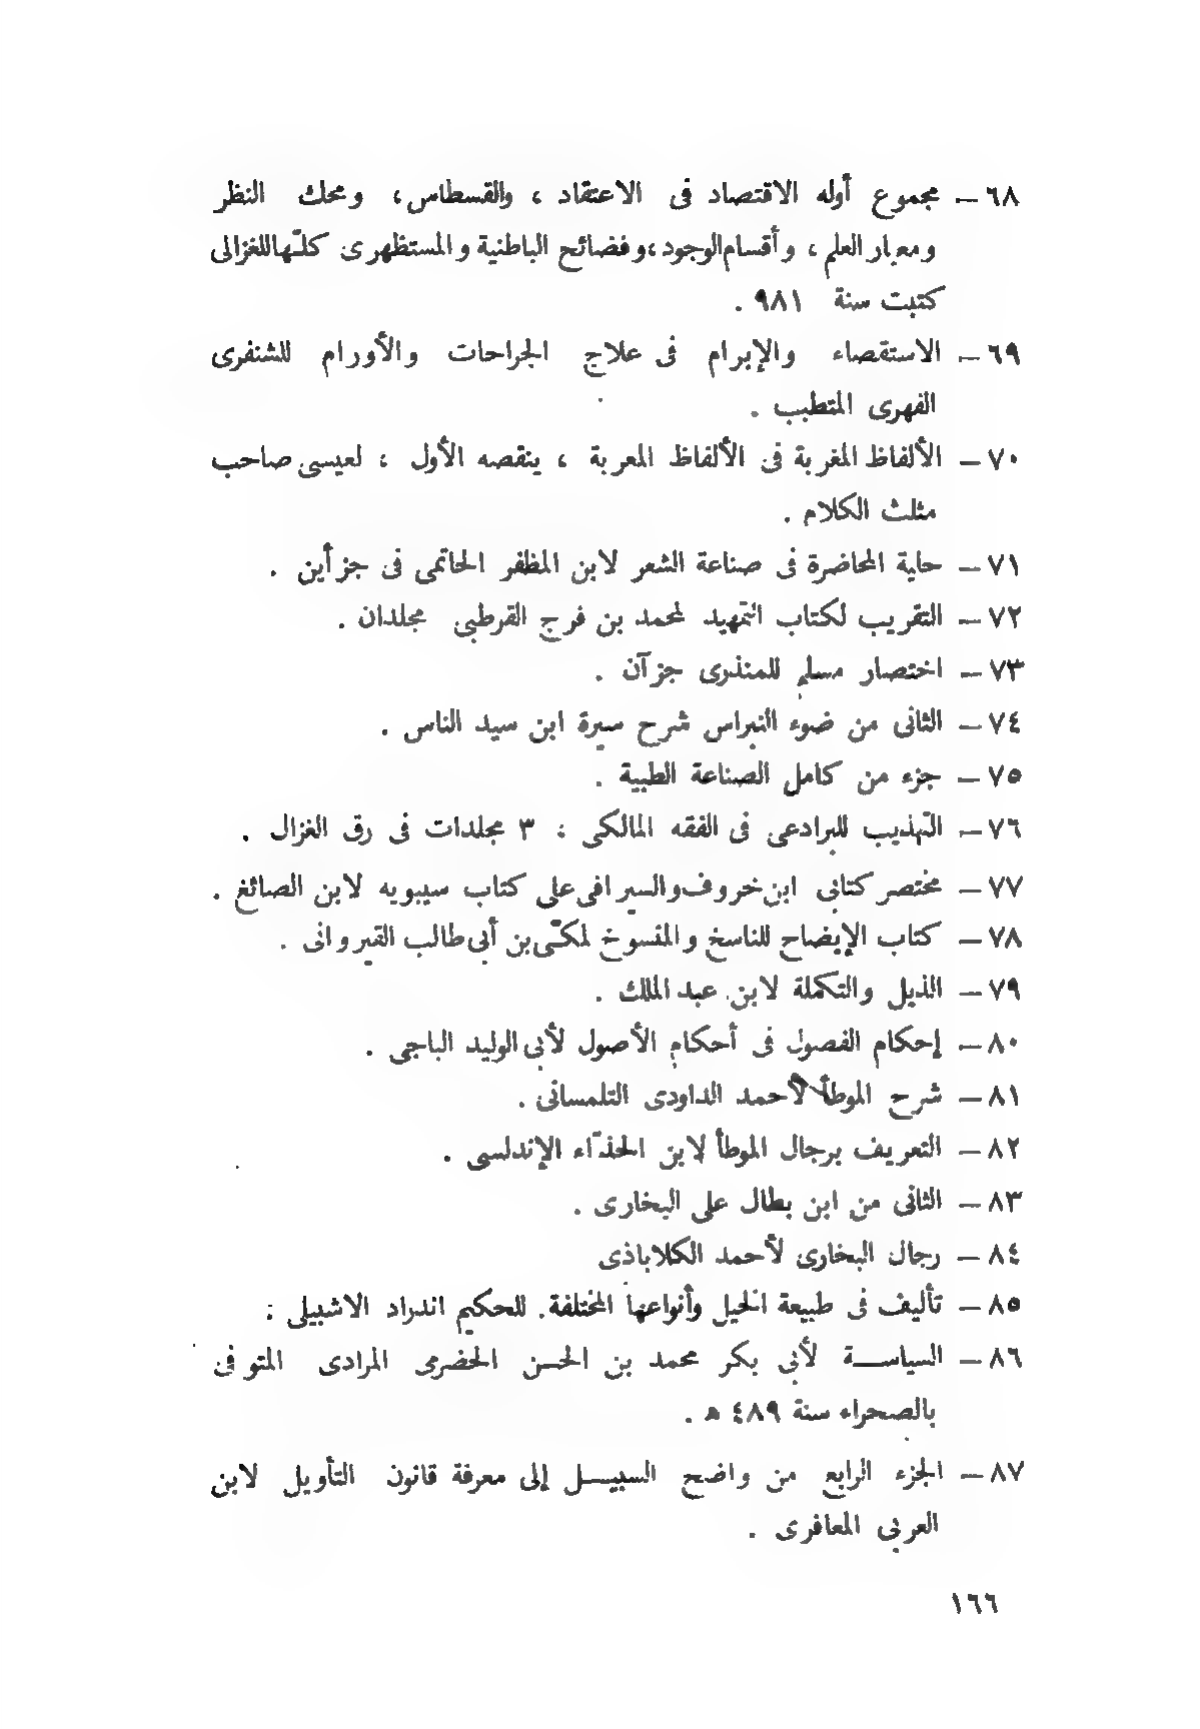 ٦٨ – مجموع أوله الاقتصاد فى الاعتقاد ، والقسطاس، ومحك النظر
ومعيار العلم ، وأقسام الوجود ، وفضائح الباطنية والمستظهرى كلّها للغزالى
كتبت سنة ٩٨١ .
٦٩ – الاستقصاء والإبرام فى علاج الجراحات والأورام للشنفرى
الفهرى المتطبب .
٧٠ – الألفاظ المغربة فى الألفاظ المعربة ، ينقصه الأول ، لعيسى صاحب
مثلث الكلام .
٧١ – حلية المحاضرة فى صناعة الشعر لابن المظفر الحاتمى فى جزأين .
٧٢ – التقريب لكتاب التمهيد لمحمد بن فرج القرطبى مجلدان .
٧٣ – اختصار مسلم للمنذرى جزآن .
٧٤ – الثانى من ضوء النبراس شرح سيرة ابن سيد الناس .
٧٥ – جزء من كامل الصناعة الطبية .
٧٦ – التهذيب للبرادعى فى الفقه المالكى : ٣ مجلدات فى رق الغزال .
٧٧ – مختصر كتابى ابن خروف والسيرافى على كتاب سيبويه لابن الصائغ .
٧٨ – كتاب الإيضاح للناسخ والمنسوخ لمكّى بن أبى طالب القيروانى .
٧٩ – الذيل والتكملة لابن عبد الملك .
٨٠ – إحكام الفصول فى أحكام الأصول لأبى الوليد الباجى .
٨١ – شرح الموطأ لأحمد الداودى التلمسانى .
٨٢ – التعريف برجال الموطأ لابن الحذّاء الإندلسى .
٨٣ – الثانى من ابن بطال على البخارى .
٨٤ – رجال البخارى لأحمد الكلاباذى
٨٥ – تأليف فى طبيعة الخيل وأنواعها المختلفة. للحكيم اندراد الاشبيلى :
٨٦ – السياسة لأبى بكر محمد بن الحسن الحضرمى المرادى المتوفى
بالصحراء سنة ٤٨٩ ه .
٨٧ – الجزء الرابع من واضح السبيل إلى معرفة قانون التأويل لابن
العربى المعافرى .
١٦٦